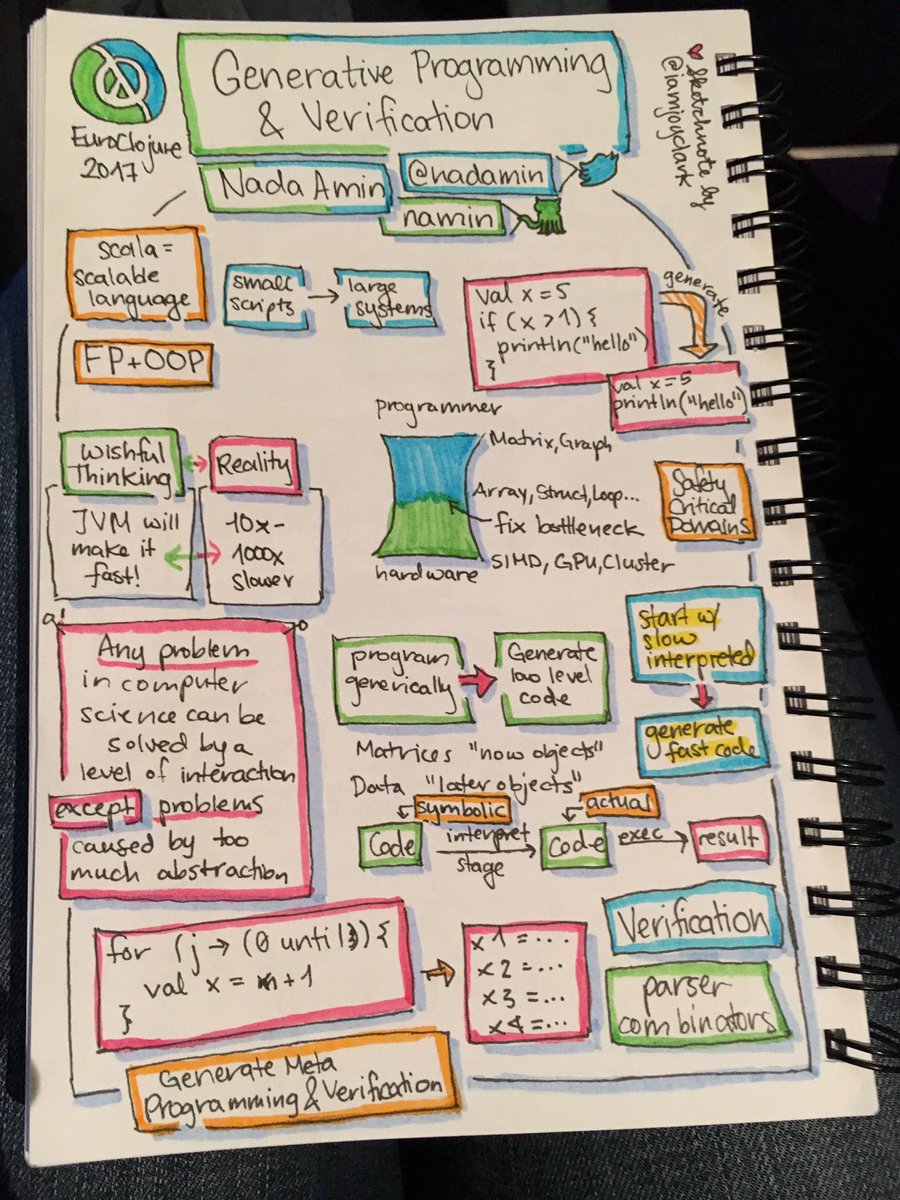 Generative Programming
& Verification
EuroClojure
2017
♥ sketchnote by
@iamjoyclark
Nada Amin
@nadamin
namin
scala =
scalable
language
small
scripts
large
systems
FP+OOP
val x = 5
if (x > 1) {
println("hello")
}
generate
val x = 5
println("hello")
Wishful
Thinking
Reality
JVM will
make it
fast!
10x-
1000x
slower
programmer
Matrix, Graph
Array, Struct, Loop...
fix bottleneck
SIMD, GPU, Cluster
hardware
Safety
Critical
Domains
Any problem
in computer
science can be
solved by a
level of interaction
except problems
caused by too
much abstraction
program
generically
Generate
low level
code
start w/
slow
interpreted
generate
fast code
Matrices "now objects"
Data "later objects"
symbolic
actual
Code
interpret
stage
Code
exec
result
for (j → (0 until 3)) {
val x = n + 1
}
x1 = ...
x2 = ...
x3 = ...
x4 = ...
Verification
parser
combinators
Generate Meta
Programming & Verification